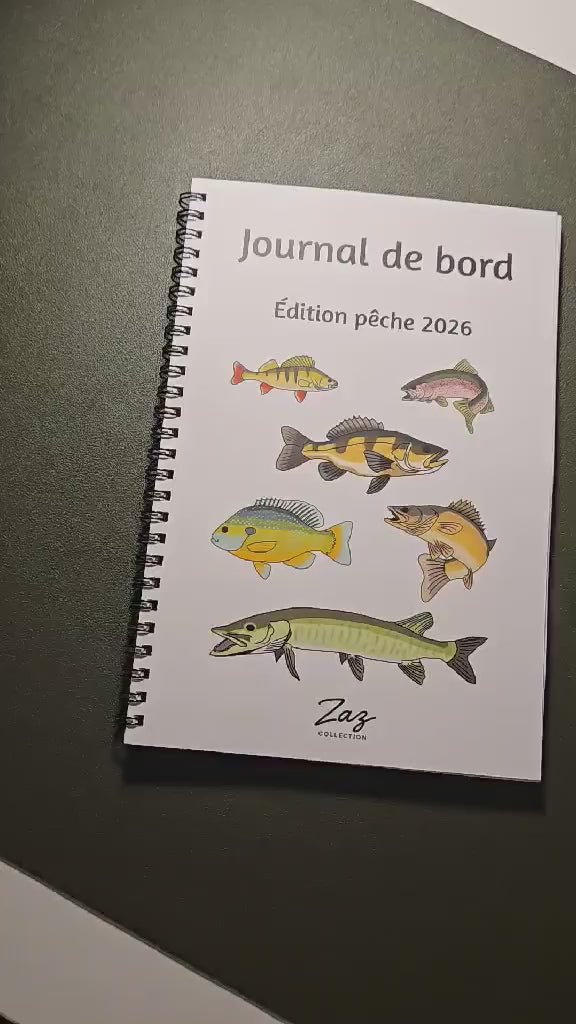 Journal de bord
Édition pêche 2026
Zaz
COLLECTION